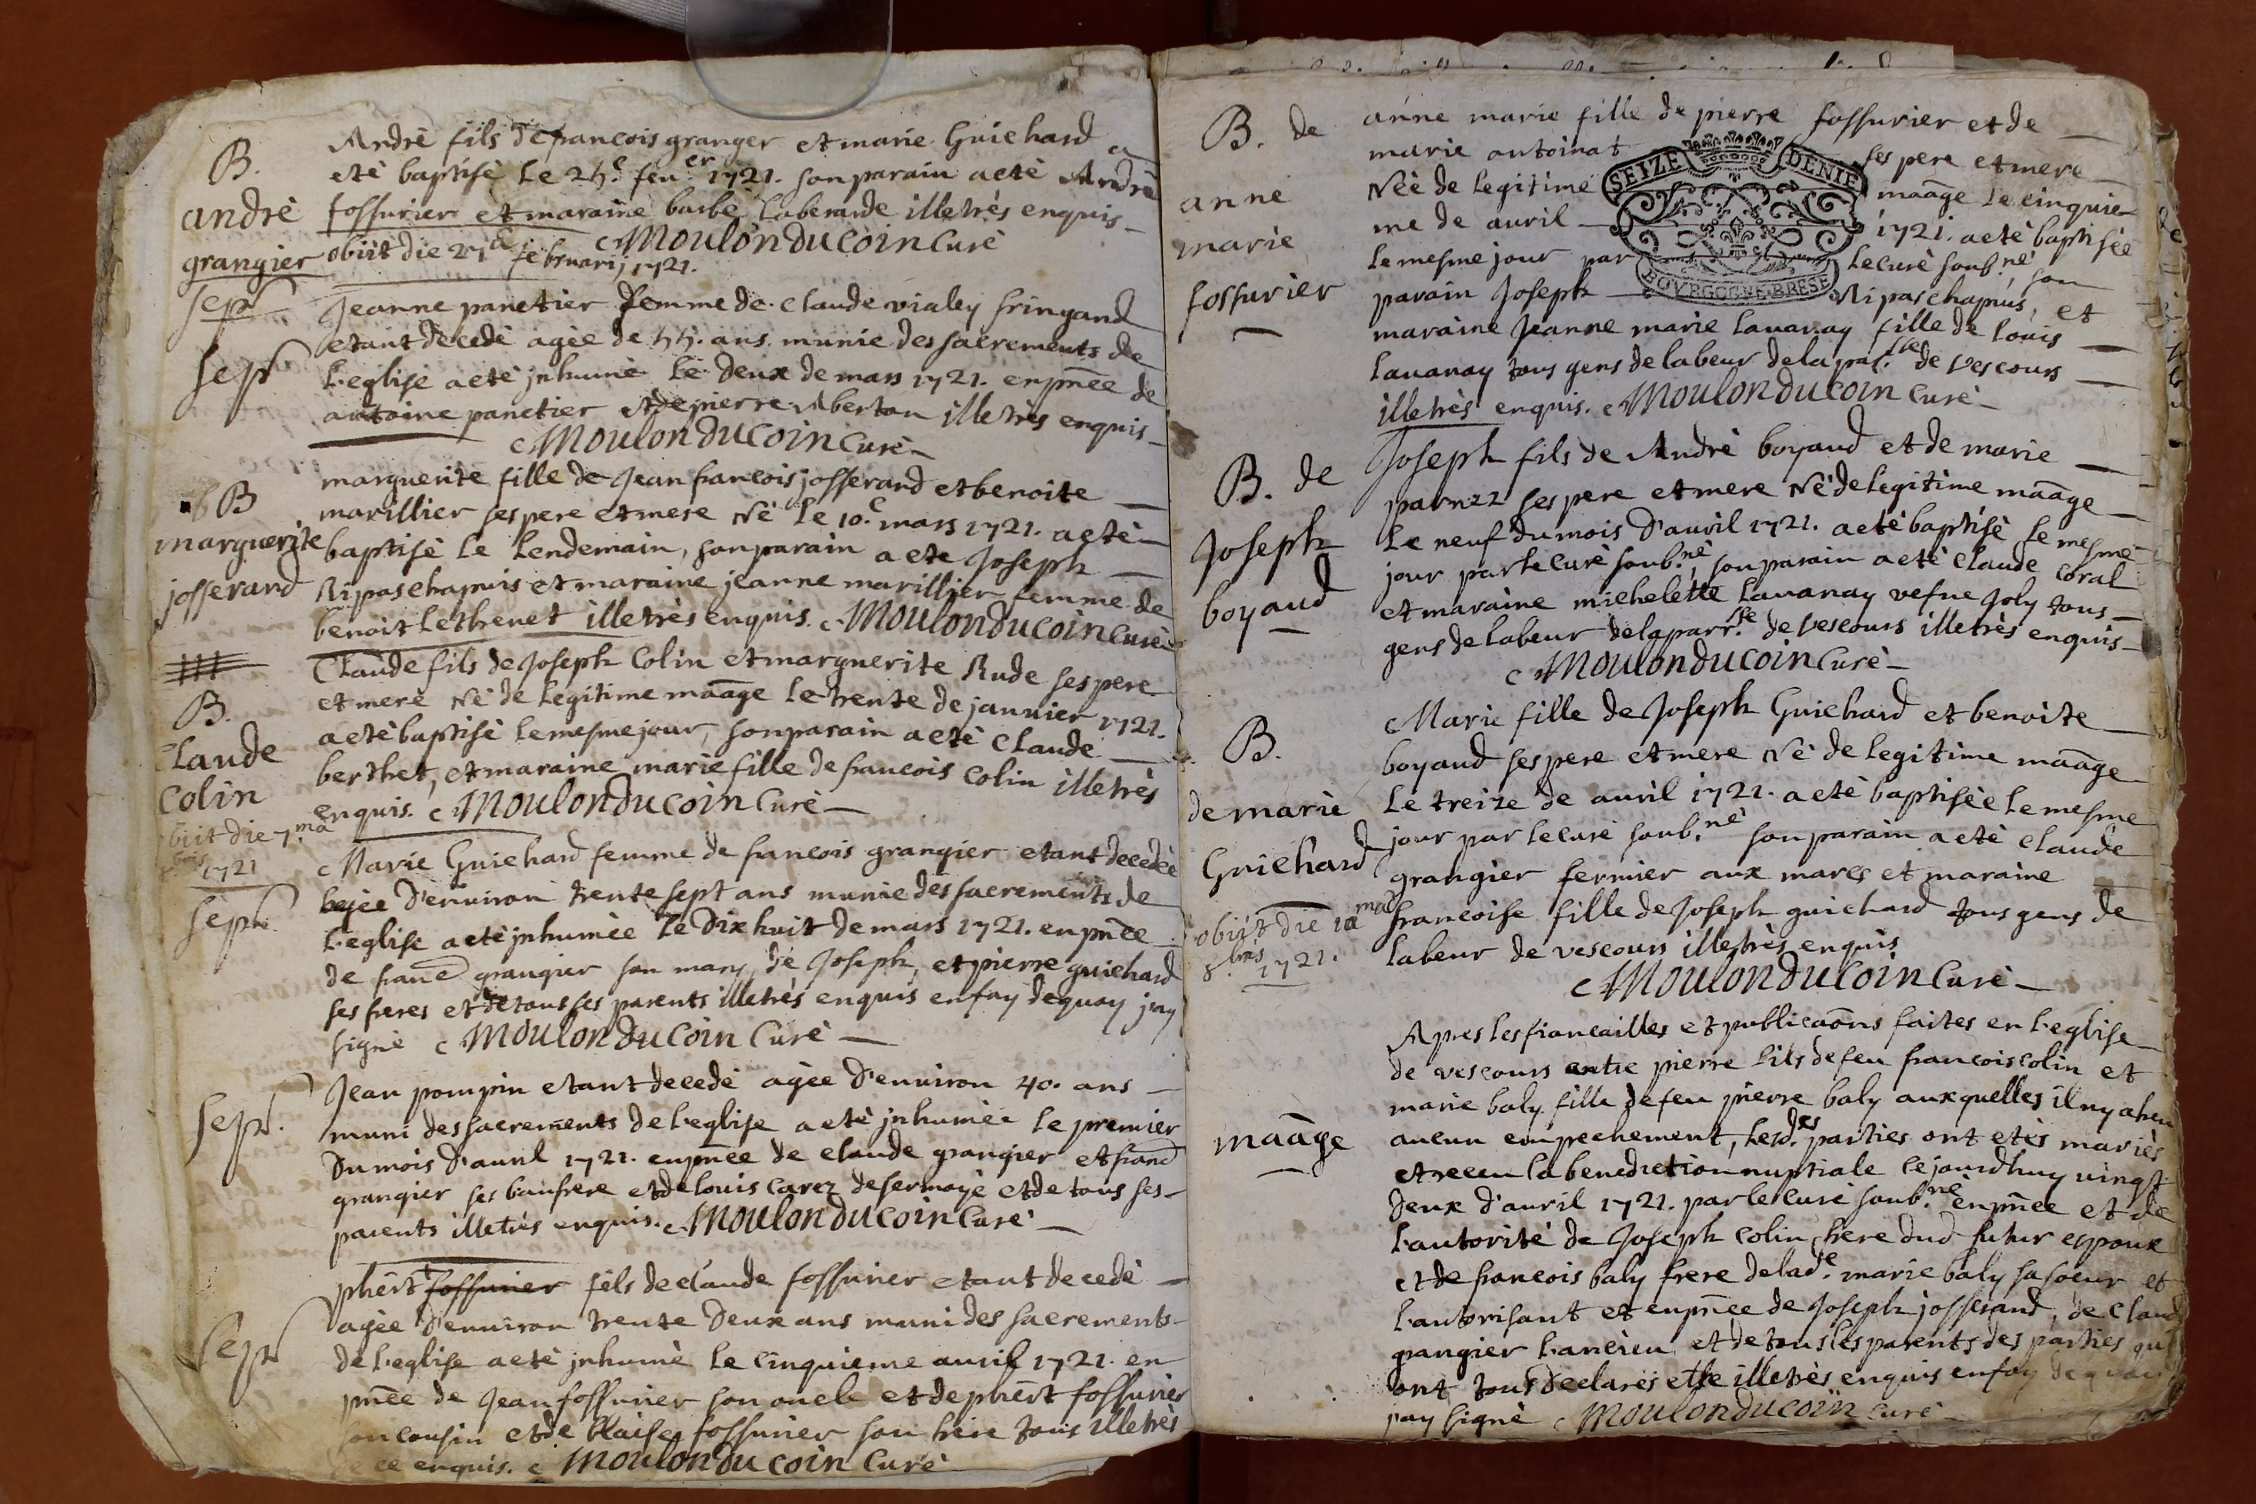 B.
andrè
grangier
Andrè fils de francois granger et marie Guichard a
etè baptisè Le 25.e feu.er 1721. son parain a etè Andrè
fossurier et maraine barbe Laberarde illetrès enquis
Moulon du coin Curè
obiit die 27a februarij 1721.
sep.
sep.
Jeanne panetier femme de claude vialey fringand
etant decedè agèe de 55. ans munie des sacrements de
L'eglise a etè jnhumè Le Deux de mars 1721. en pñce de
antoine panetier et de pierre Aberton illetrès enquis
Moulon du coin Curè
B
marguerite
josserand
marguerite fille de Jean francois josserand et benoite
marillier ses pere et mere Nè Le 10.e mars 1721. a etè
baptisè Le Lendemain, son parain a ete Joseph
Ripas chapuis et maraine jeanne marillier femme de
benoit Lethenet illetrès enquis. Moulon du coin Curè
B.
claude
colin
obiit die 7.ma
1721
Claude fils de Joseph Colin et marguerite Rude ses pere
et merè Nè de Legitime maãge Le trente de januier 1721.
a etè baptisè Le mesme jour, son parain a etè Claude
berthet, et maraine marie fille de francois colin illetrès
enquis. Moulon du coin Curè
sep.
Marie Guichard femme de francois grangier etant decedèe
agèe d'enuiron trente sept ans munie des sacrements de
L'eglise a etè jnhumèe Le Dix huit de mars 1721. en pñce
de franc grangier son mary, de Joseph, et pierre guichard
ses freres et de tous ses parents illetrès enquis en foy dequoy j'ay
signè Moulon du coin Curè
sep.
Jean pompin etant decedè agèe d'enuiron 40. ans
muni des sacrements de L'eglise a etè jnhumèe Le premier
du mois d'auril 1721. en pñce de claude grangier et franc
grangier ses baufrere et de Louis Carez de sermoyè et de tous ses
parents illetrès enquis. Moulon du coin Curè
sep.
phbert fossurier fils de claude fossurier etant decedè
agèe d'enuiron trente Deux ans muni des sacrements
de L'eglise a etè jnhumè Le cinquieme auril 1721. en
pñce de Jean fossurier son oncle et de phbert fossurier
son cousin et de blaise fossurier son frere tous illetrès
de ce enquis. Moulon du coin Curè
B. de
anne
marie
fossurier
SEIZE DENIE
BOVRGOGNE BRESE
anne marie fille de pierre fossurier et de
marie antoinat ses pere et mere
Nèè de Legitime maãge Le cinquiè
me de auril 1721. a etè baptisèe
Le mesme jour par Le curè soub.nè son
parain Joseph Ripas chapuis, et
maraine Jeanne marie Lauanay fille de Louis
Lauanay tous gens de labeur de la par.sse de Vescours
illetrès enquis. Moulon du coin Curè
B. de
Joseph
boyaud
Joseph fils de Andrè boyaud et de marie
parnez ses pere et mere Nè de Legitime maãge
Le neuf du mois d'auril 1721. a etè baptisè Le mesme
jour par Le curè soub.nè, son parain a etè claude coral
et maraine michelette Lauanay vefue Joly tous
gens de labeur de la parr.sse de Vescours illetrès enquis
Moulon du coin Curè
B.
de marie
Guichard
obijt die 10 ma
8.bris 1721.
Marie fille de Joseph Guichard et benoite
boyaud ses pere et mere Nè de Legitime maãge
Le treize de auril 1721. a etè baptisèe Le mesme
jour par Le curè soub.nè son parain a etè claude
grangier fermier aux mares et maraine
francoise fille de Joseph guichard tous gens de
Labeur de vescours illetrès enquis
Moulon du coin Curè
maãge
Apres les fiancailles et publicaõns faites en L'eglise
de vescours entre pierre fils de feu francois colin et
marie baly fille de feu pierre baly aux quelles il ny a heu
aucun empechement, Lesd.es parties ont etès mariès
et receu la benediction nuptiale ce jourdhuy uingt
Deux d'auril 1721. par Le curè soub.nè en pñce et de
L'autorité de Joseph colin, frere dud futur espoux
et de francois baly frere de lad.e marie baly sa soeur et
L'autorisant et en pñce de Joseph josserand, de Claud
grangier L'ancien et de tous les parents des parties qui
ont tous declarès etre illetrès enquis en foy de quoi
jay signè Moulon du coin Curè